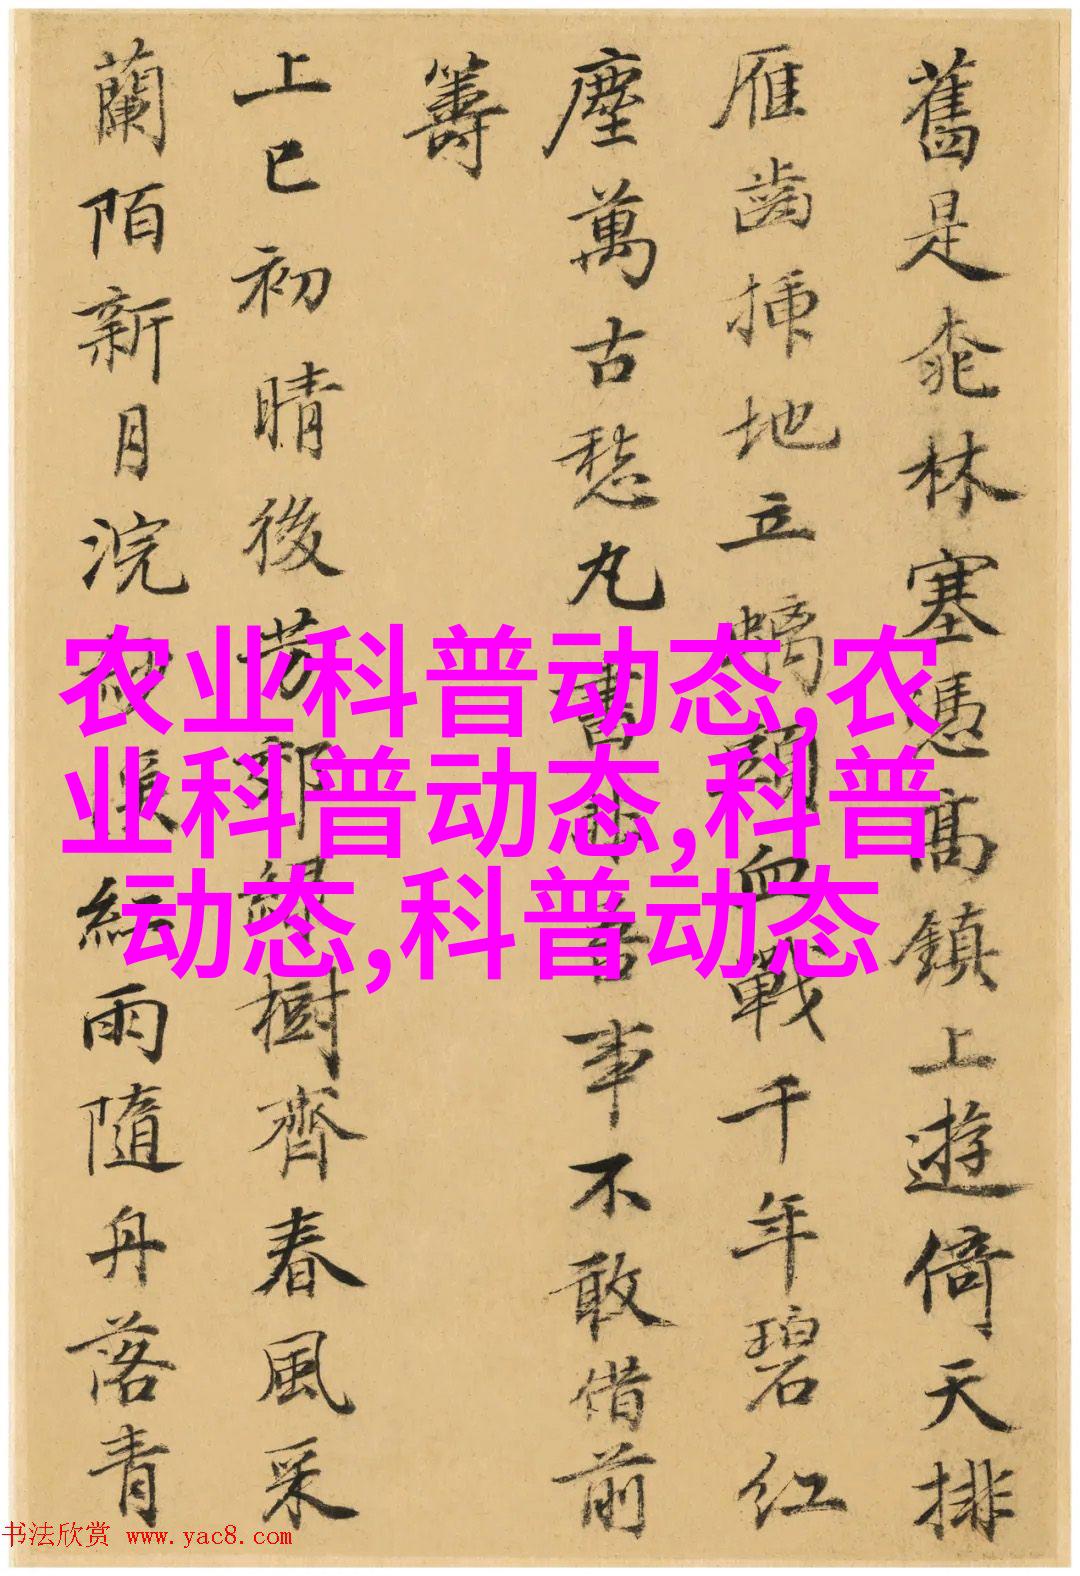 舊是桃林塞憑高鎮上遊倚天排
雁齒插地立螭頭血戰千年碧紅
塵萬古愁丸書吾事不敢借前
籌
上巳初晴後芳郊綠樹齊春風采
蘭陌新月浣紅雨隨舟落青
农业科普动态,农
业科普动态,科普
动态,科普动态
书法欣赏 www.yac8.com